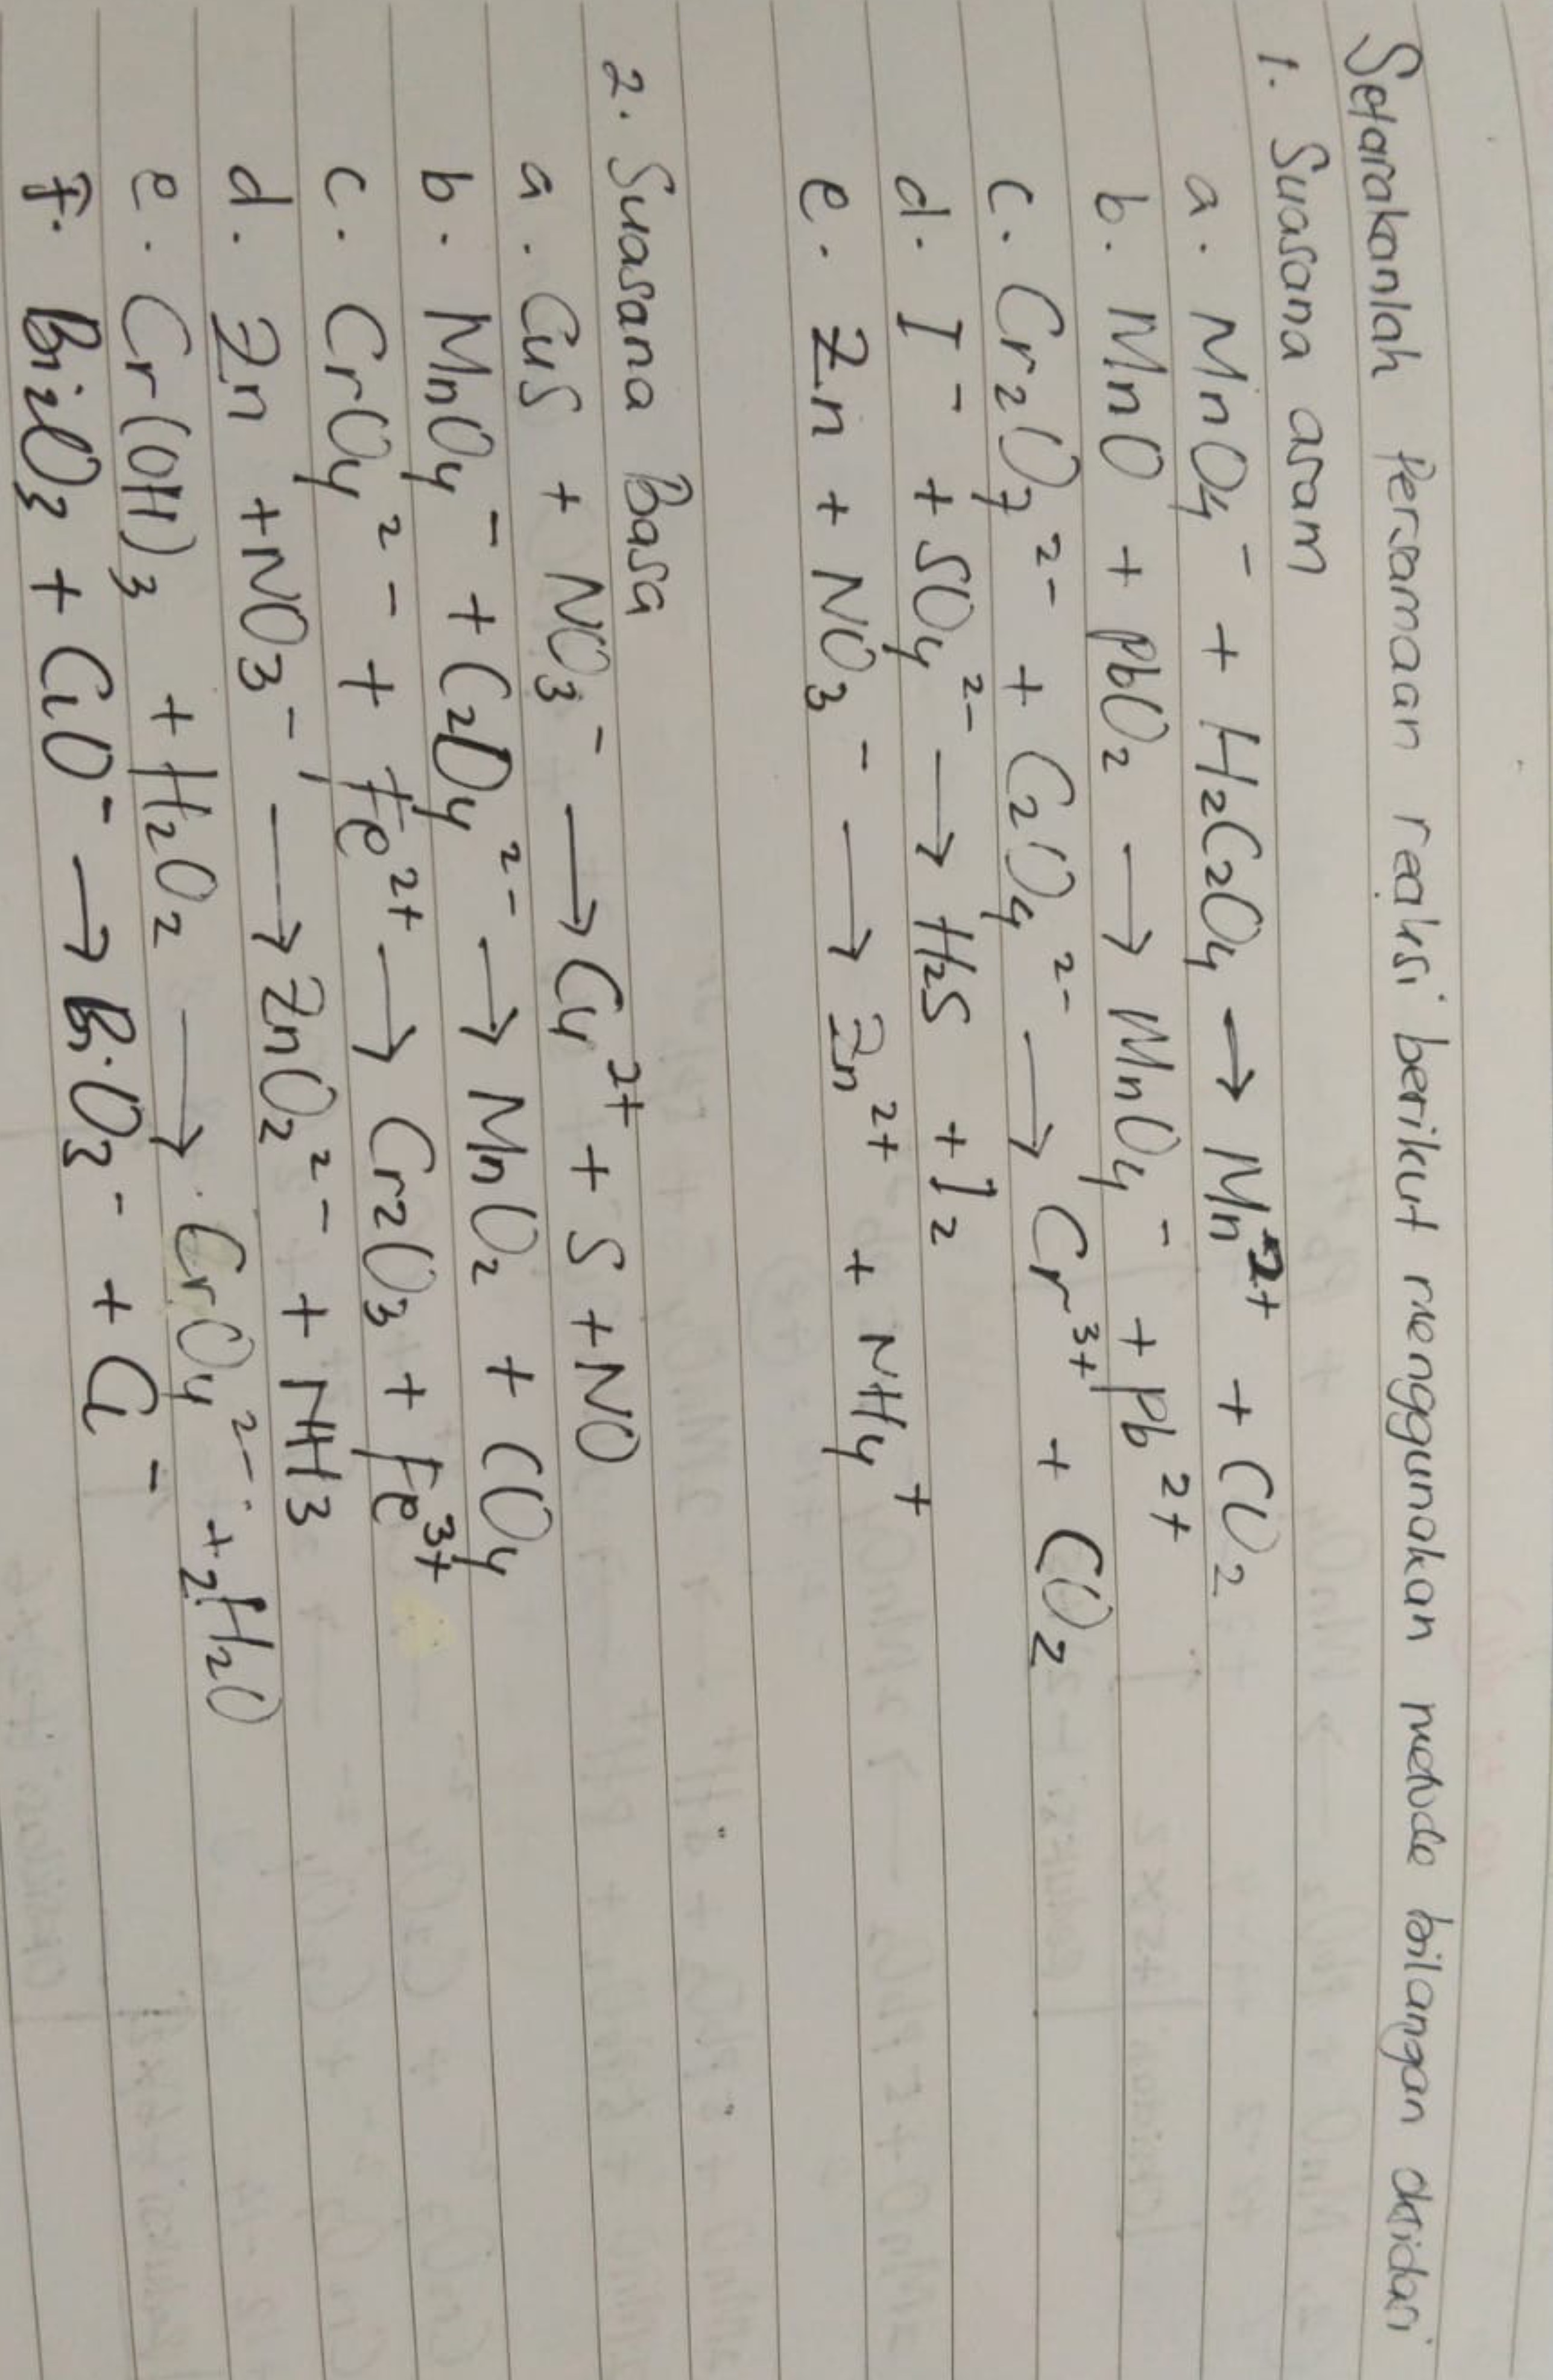 Setarakanlah Persamaan reaksi berikut menggunakan metode bilangan oksidasi
1. Suasana asam
a. MnO₄⁻ + H₂C₂O₄ → Mn²⁺ + CO₂
b. MnO + PbO₂ → MnO₄⁻ + Pb²⁺
c. Cr₂O₇²⁻ + C₂O₄²⁻ → Cr³⁺ + CO₂
d. I⁻ + SO₄²⁻ → H₂S + I₂
e. Zn + NO₃⁻ → Zn²⁺ + NH₄⁺
2. Suasana Basa
a. CuS + NO₃⁻ → Cu²⁺ + S + NO
b. MnO₄⁻ + C₂O₄²⁻ → MnO₂ + CO₄
c. CrO₄²⁻ + Fe²⁺ → Cr₂O₃ + Fe³⁺
d. Zn + NO₃⁻ → ZnO₂²⁻ + NH₃
e. Cr(OH)₃ + H₂O₂ → CrO₄²⁻ + 2H₂O
f. Bi₂O₃ + ClO⁻ → BiO₃⁻ + Cl⁻